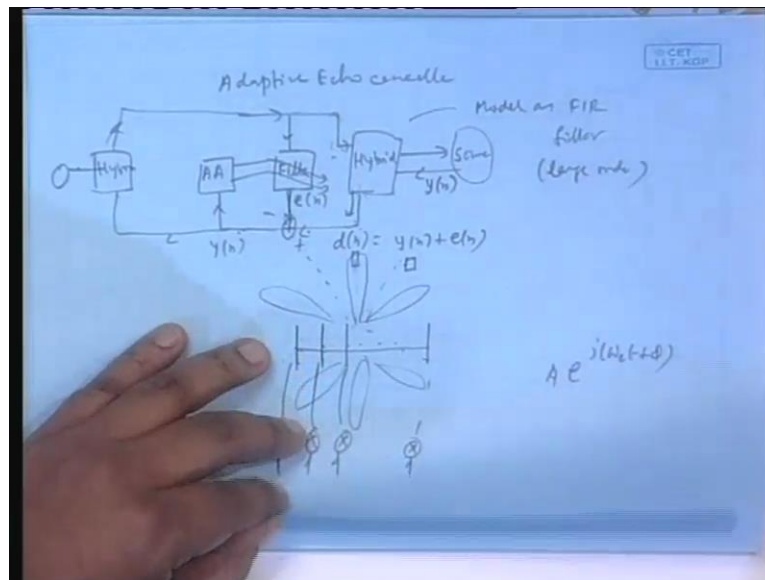 © CET
I.I.T. KGP
Adaptive Echo cancelle
Model as FIR
filter
(large order)
Hybri
AA
Filter
Hybrid
Some
e(n)
y(n)
-
+
y(n)
d(n) = y(n) + e(n)
A e